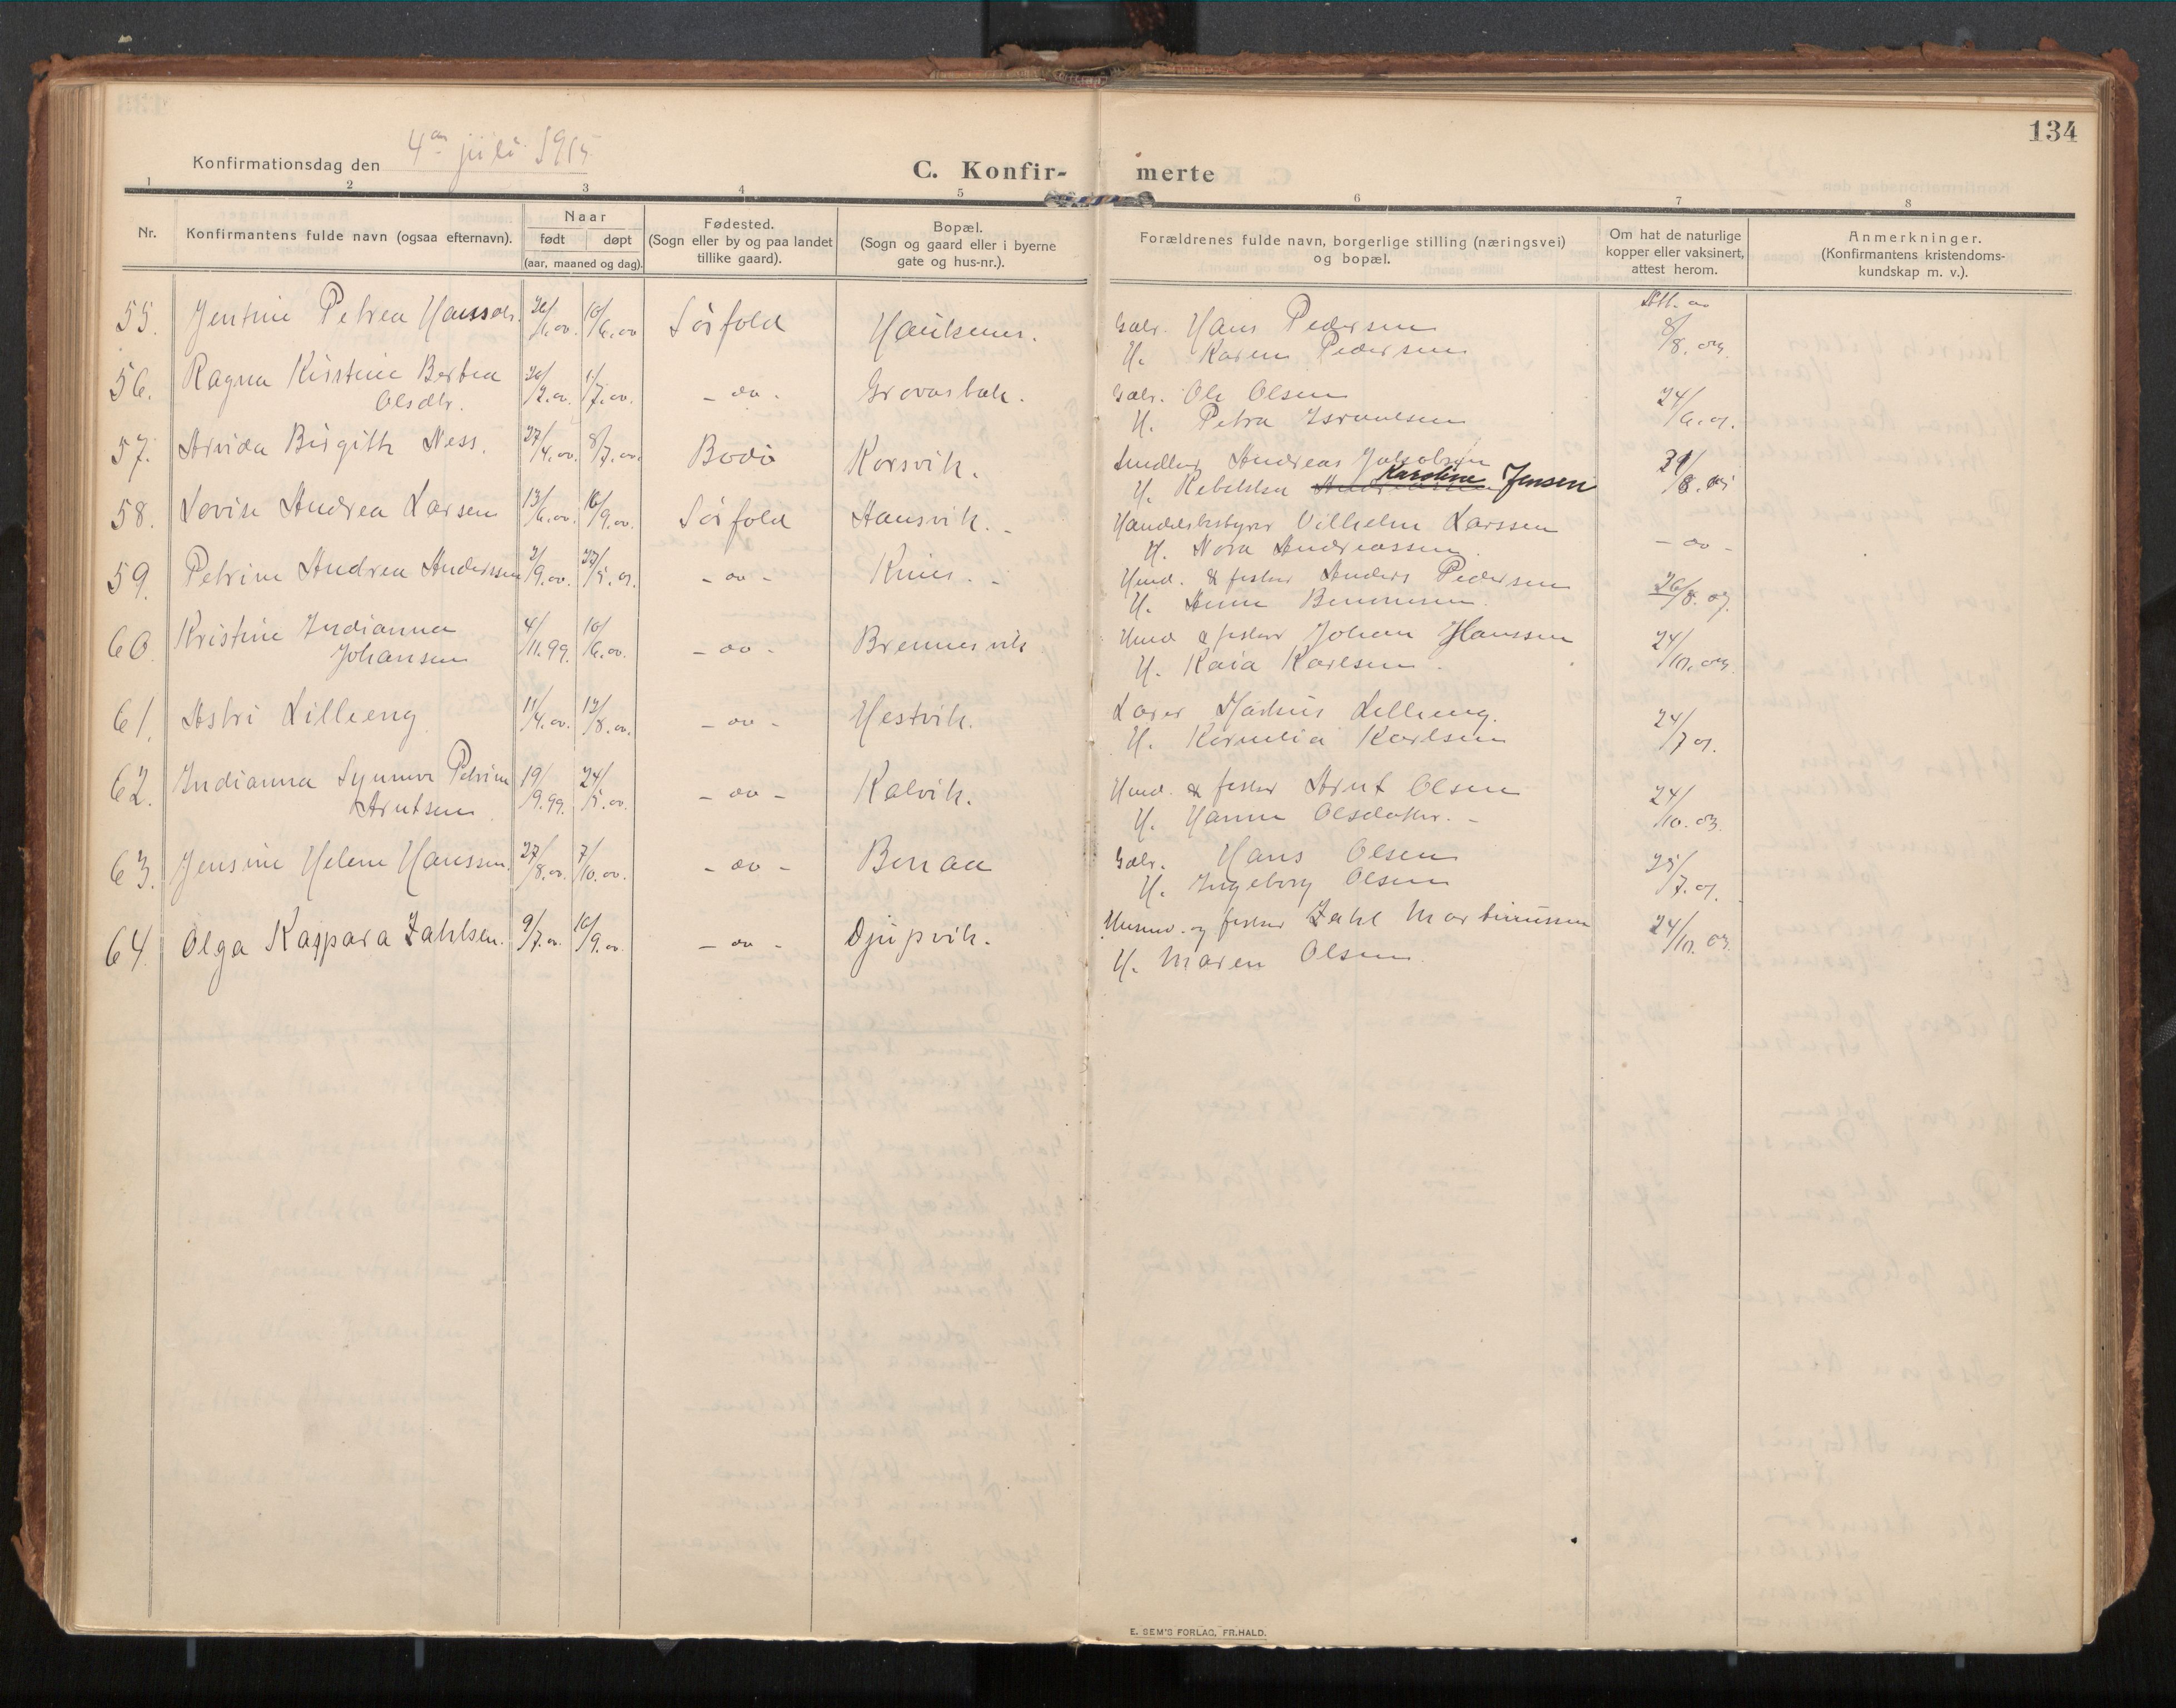 134
Konfirmationsdag den 4de juli 1915
C. Konfir- merte
1 2 3 4 5 6 7 8
Nr.
Konfirmantens fulde navn (ogsaa efternavn).
Naar
født døpt
(aar, maaned og dag).
Fødested.
(Sogn eller by og paa landet
tillike gaard).
Bopæl.
(Sogn og gaard eller i byerne
gate og hus-nr.).
Forældrenes fulde navn, borgerlige stilling (næringsvei)
og bopæl.
Om hat de naturlige
kopper eller vaksinert,
attest herom.
Anmerkninger.
(Konfirmantens kristendoms-
kundskap m. v.).
55. Jentine Petrea Hanssdtr. 10/6.00 Sørfold Gabr. Hans Pedersen Att. av
H. Karen Pedersen 8/8.
56. Ragna Kirstine Bertea 1/7.00. - oo - Grovasbak. Gabr. Ole Olsen 24/6.01.
Olsdtr. H. Petra Israelsen
57. Arvida Birgith Ness. 27/4.00. 8/7.00. Bodø Korsvik. Andreas Jakobsen
H. Rebekka Karoline Jensen
58. Lovise Andrea Larsen 13/6.00. 16/9.00. Sørfold Hansvik. - Handelsbestyrer Vilhelm Larssen - oo -
H. Nora Andreassen.
59. Petrine Andrea Anderssen 2/9.00. 27/5.01. - oo - - Hmd. & fisker Anders Pedersen 26/8.07.
H. Anne
60. Kristine Indianna 4/11.99. 10/6.00. - oo - Brennesvik Hmd & fisker Johan Hanssen
Johansen H. Kaia Karlsen.
61. Astri Lilleeng 11/4.00. 12/8.00. - oo - Hestvik. Lærer Markus Lilleeng. 24/7 01.
H. Kornelia Karlsen
62. Indianna Synnøve Petrine 19/9.99. 24/5.00. - oo - Kalvik. Hmd. & fisker Arnt Olsen 24/10.03.
Arntsen. H. Hanna Olsdatter. -
63. Jensine Helene Hanssen. 27/8.00. 7/10.00. - oo - Bonaa Gabr. Hans Olsen 25/7.01.
H. Ingeborg Olsen
64. Olga Kaspara Zahlsen. 9/7.00. 16/9.00. - oo - Djupvik. Husmd. og fisker Zahl Martinussen 24/10.03.
H. Maren Olsen.
E. SEM'S FORLAG, FR.HALD.